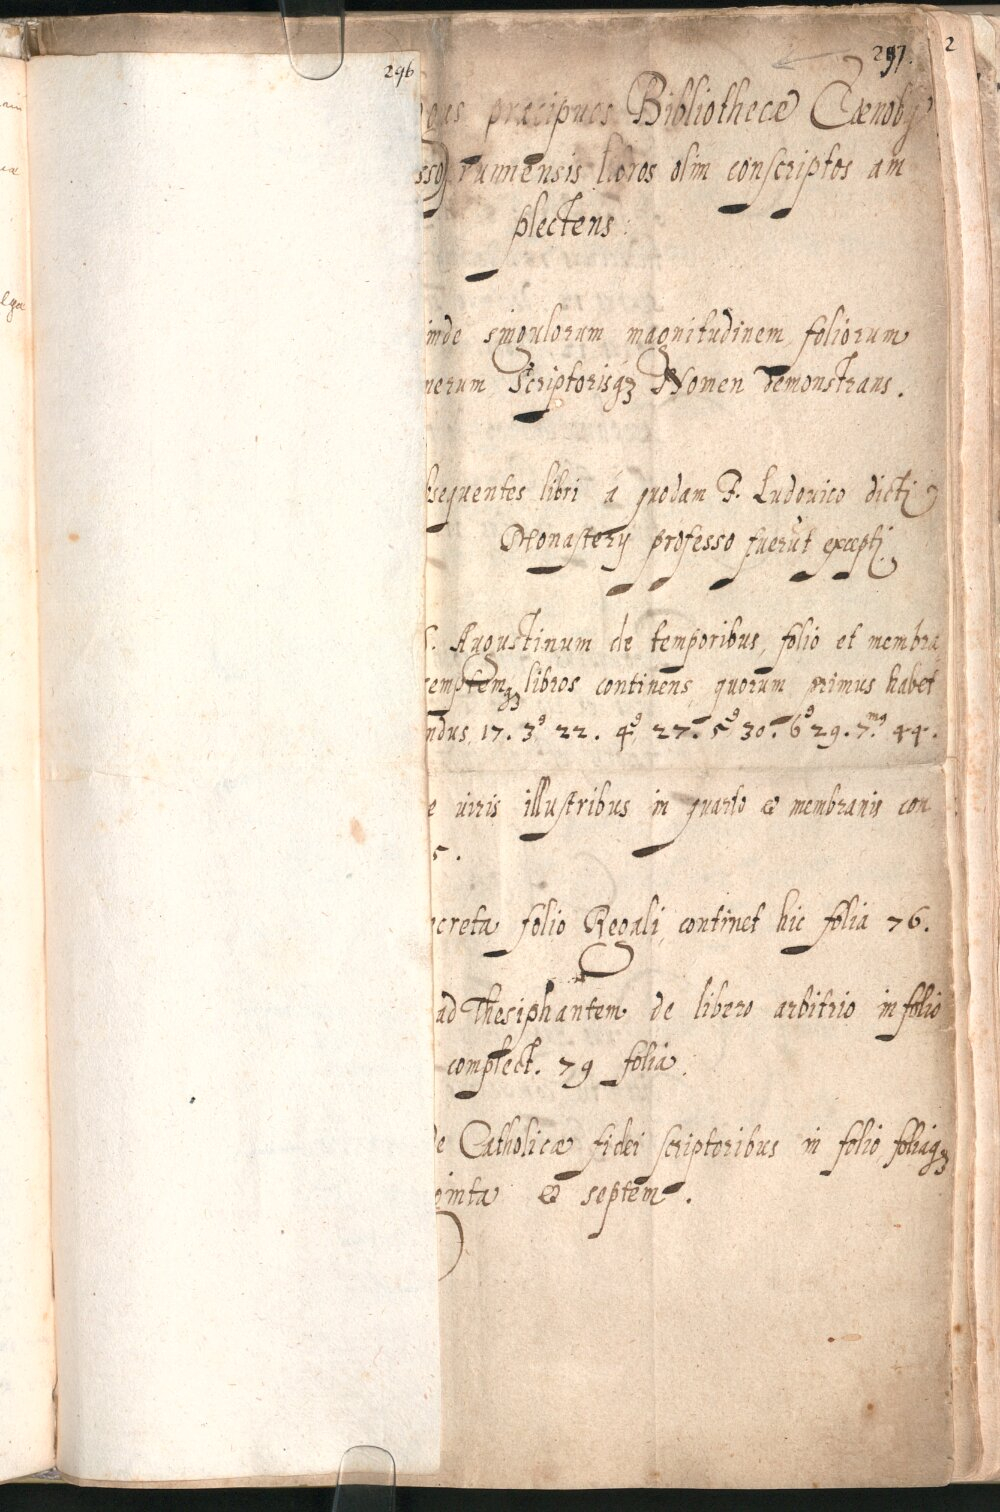 296
297.
2
præcipuos Bibliothecæ Cænobij
runnensis libros olim conscriptos am
plectens.
inde singulorum magnitudinem foliorum
merum Scriptorisqꝫ Nomen demonstrans.
bsequentes libri á quodam F. Ludouico dicti
Monasterij professo fuerūt excepti.
S. Augustinum de temporibus, folio et membra
septemqꝫ libros continens, quorum primus habet
ndus, 17. 3⁹ 22. 4⁹ 27. 5⁹ 30. 6⁹ 29. 7.m⁹ 44.
e uiris illustribus in quarto & membranis con
5.
creta folio Regali, continet hic folia 76.
ad Thesiphantem de libero arbitrio in folio
complect. 79 folia.
de Catholicæ fidei scriptoribus in folio, foliaqꝫ
ginta & septem.